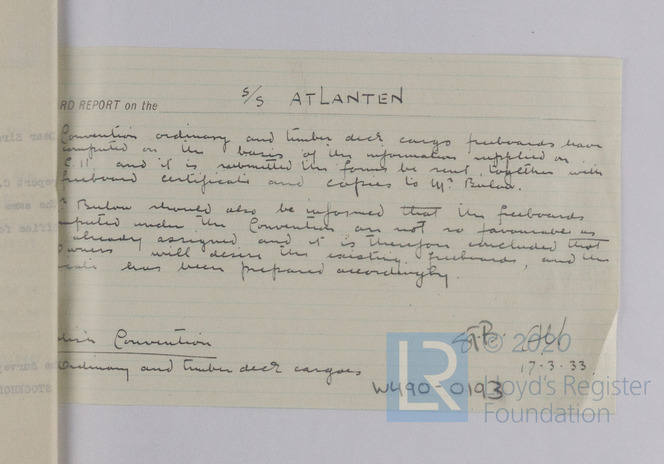 RD REPORT on the S/S ATLANTEN
Convention ordinary and timber deck cargo freeboards have
computed on the basis of the information supplied on
C.11 and it is submitted the forms be sent, together with
freeboard certificate and copies to Mr Bulow.
Bulow should also be informed that the freeboards
mputed under the Convention are not so favourable as
already assigned and it is therefore concluded that
owners will desire the existing freeboards, and the
cate has been prepared accordingly.
Convention
Ordinary and timber deck cargoes
S.T.B.
17.3.33.
W490-0193
Dear Sirs
eport C.
he same
ffice fo
he Survey
STOCKHO
LR
© 2020
Lloyd's Register
Foundation